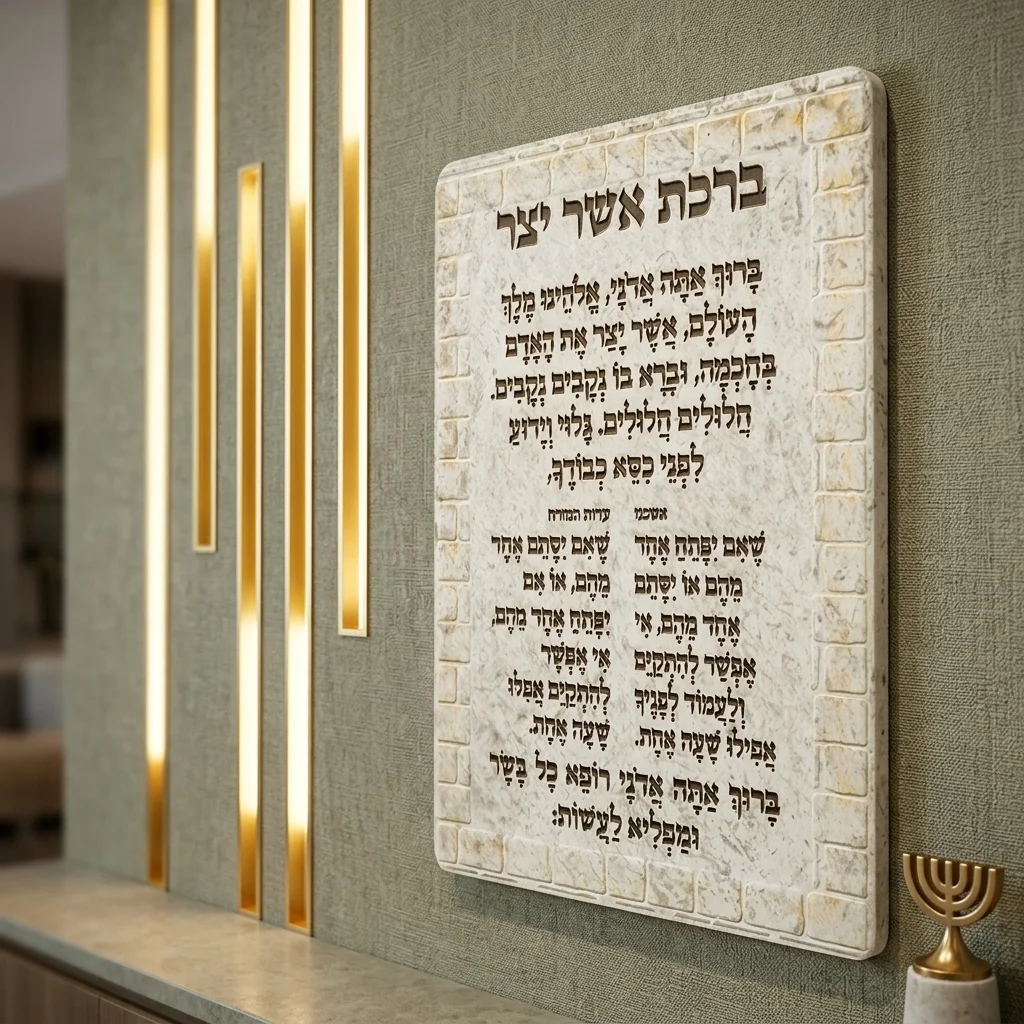 ברכת אשר יצר
בָּרוּךְ אַתָּה אֲדֹנָי, אֱלֹהֵינוּ מֶלֶךְ
הָעוֹלָם, אֲשֶׁר יָצַר אֶת הָאָדָם
בְּחָכְמָה, וּבָרָא בוֹ נְקָבִים נְקָבִים.
חֲלוּלִים חֲלוּלִים. גָּלוּי וְיָדוּעַ
לִפְנֵי כִסֵּא כְבוֹדֶךָ,
אשכנז
שֶׁאִם יִפָּתֵחַ אֶחָד
מֵהֶם אוֹ יִסָּתֵם
אֶחָד מֵהֶם, אִי
אֶפְשַׁר לְהִתְקַיֵּם
וְלַעֲמוֹד לְפָנֶיךָ
אֲפִילוּ שָׁעָה אֶחָת.
עדות המזרח
שֶׁאִם יִסָּתֵם אֶחָד
מֵהֶם, אוֹ אִם
יִפָּתֵחַ אֶחָד מֵהֶם,
אִי אֶפְשָׁר
לְהִתְקַיֵּם אֲפִלּוּ
שָׁעָה אֶחָת.
בָּרוּךְ אַתָּה אֲדֹנָי רוֹפֵא כָל בָּשָׂר
וּמַפְלִיא לַעֲשׂוֹת: